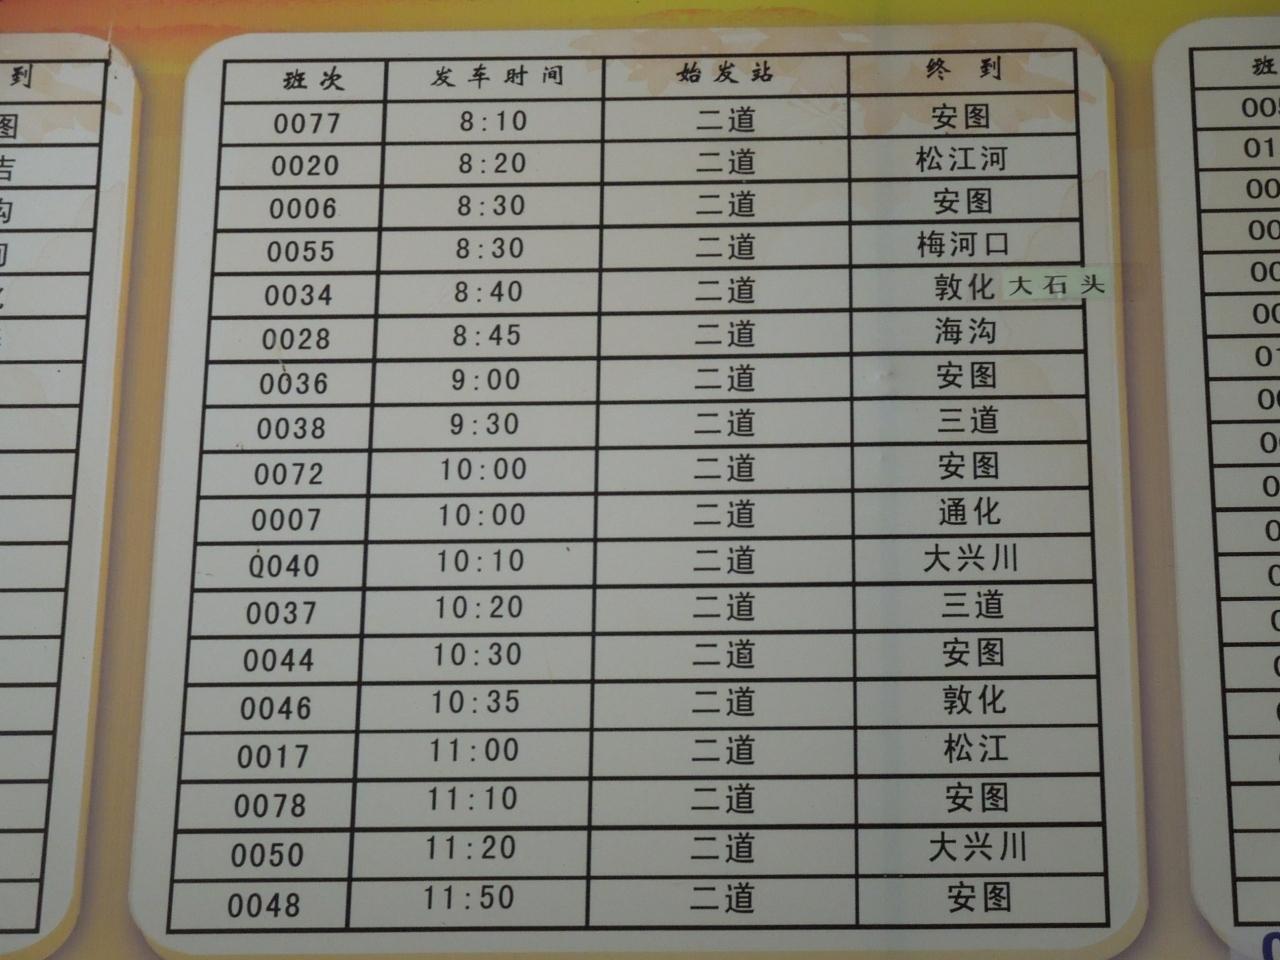 班次 发车时间 始发站 终到
0077 8:10 二道 安图
0020 8:20 二道 松江河
0006 8:30 二道 安图
0055 8:30 二道 梅河口
0034 8:40 二道 敦化 大石头
0028 8:45 二道 海沟
0036 9:00 二道 安图
0038 9:30 二道 三道
0072 10:00 二道 安图
0007 10:00 二道 通化
0040 10:10 二道 大兴川
0037 10:20 二道 三道
0044 10:30 二道 安图
0046 10:35 二道 敦化
0017 11:00 二道 松江
0078 11:10 二道 安图
0050 11:20 二道 大兴川
0048 11:50 二道 安图